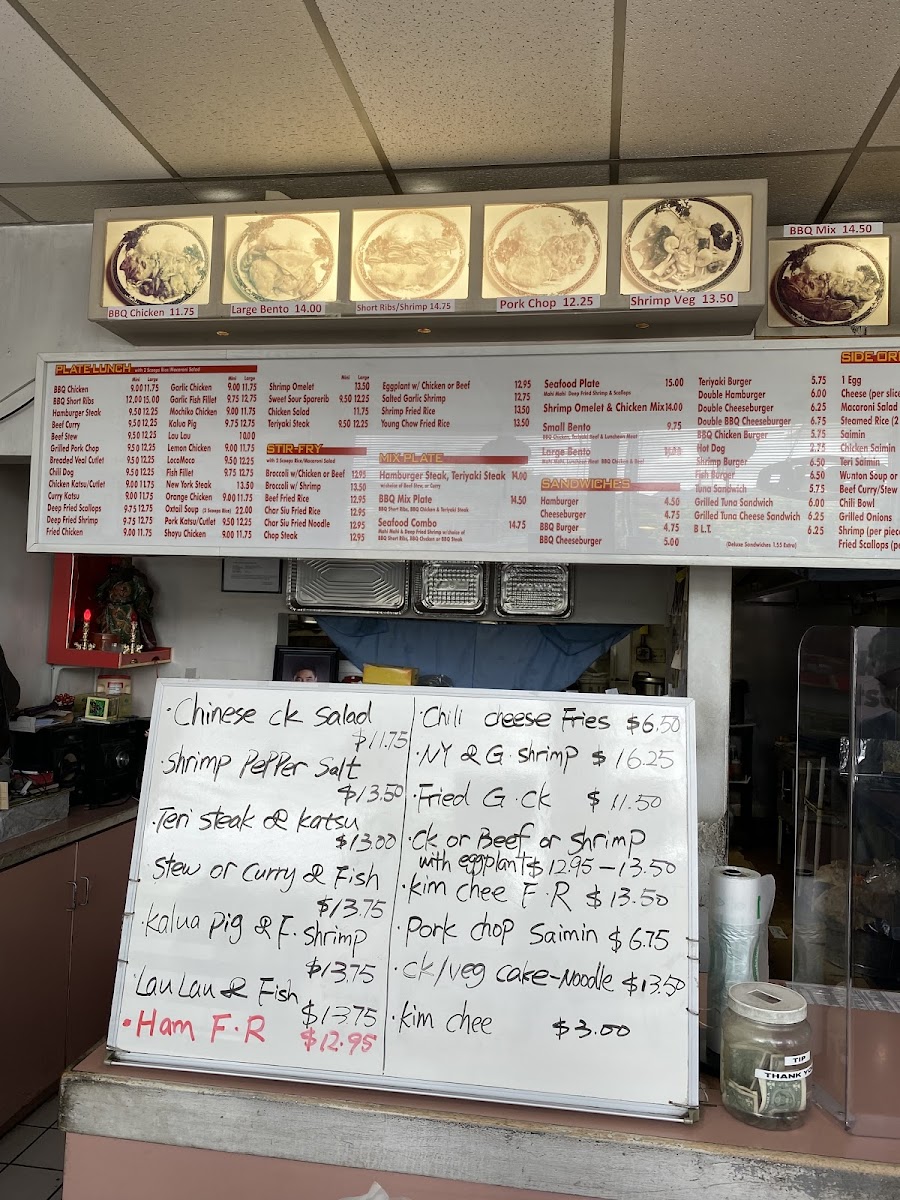 BBQ Chicken 11.75
Large Bento 14.00
Short Ribs/Shrimp 14.75
Pork Chop 12.25
Shrimp Veg 13.50
BBQ Mix 14.50
PLATE LUNCH with 2 Scoops Rice/Macaroni Salad
Mini Large
BBQ Chicken 9.00 11.75
BBQ Short Ribs 12.00 15.00
Hamburger Steak 9.50 12.25
Beef Curry 9.50 12.25
Beef Stew 9.50 12.25
Grilled Pork Chop 9.50 12.25
Breaded Veal Cutlet 9.50 12.25
Chili Dog 9.50 12.25
Chicken Katsu/Cutlet 9.00 11.75
Curry Katsu 9.00 11.75
Deep Fried Scallops 9.75 12.75
Deep Fried Shrimp 9.75 12.75
Fried Chicken 9.00 11.75
Mini Large
Garlic Chicken 9.00 11.75
Garlic Fish Fillet 9.75 12.75
Mochiko Chicken 9.00 11.75
Kalua Pig 9.75 12.75
Lau Lau 10.00
Lemon Chicken 9.00 11.75
LocoMoco 9.50 12.25
Fish Fillet 9.75 12.75
New York Steak 13.50
Orange Chicken 9.00 11.75
Oxtail Soup (2 Scoops Rice) 22.00
Pork Katsu/Cutlet 9.50 12.25
Shoyu Chicken 9.00 11.75
Mini Large
Shrimp Omelet 13.50
Sweet Sour Sparerib 9.50 12.25
Chicken Salad 11.75
Teriyaki Steak 9.50 12.25
STIR-FRY
with 2 Scoops Rice/Macaroni Salad
Broccoli w/Chicken or Beef 12.95
Broccoli w/ Shrimp 13.50
Beef Fried Rice 12.95
Char Siu Fried Rice 12.95
Char Siu Fried Noodle 12.95
Chop Steak 12.95
Eggplant w/ Chicken or Beef 12.95
Salted Garlic Shrimp 12.75
Shrimp Fried Rice 13.50
Young Chow Fried Rice 13.50
MIX PLATE
Hamburger Steak, Teriyaki Steak 14.00
w/choice of Beef Stew, or Curry
BBQ Mix Plate 14.50
BBQ Short Ribs, BBQ Chicken & Teriyaki Steak
Seafood Combo 14.75
Mahi Mahi & Deep Fried Shrimp w/choice of
BBQ Short Ribs, BBQ Chicken or BBQ Steak
Seafood Plate 15.00
Mahi Mahi Deep Fried Shrimp & Scallops
Shrimp Omelet & Chicken Mix 14.00
Small Bento 9.75
BBQ Chicken, Teriyaki Beef & Luncheon Meat
Large Bento
Mahi Mahi, Luncheon Meat BBQ Chicken & Beef
SANDWICHES
Hamburger 4.50
Cheeseburger 4.75
BBQ Burger 4.75
BBQ Cheeseburger 5.00
Teriyaki Burger 5.75
Double Hamburger 6.00
Double Cheeseburger 6.25
Double BBQ Cheeseburger 6.75
BBQ Chicken Burger 5.75
Hot Dog 2.75
Shrimp Burger 6.50
Fish Burger 6.50
Tuna Sandwich 5.75
Grilled Tuna Sandwich 6.00
Grilled Tuna Cheese Sandwich 6.25
B L T 6.25
(Deluxe Sandwiches 1.55 Extra)
SIDE OR
1 Egg
Cheese (per slice
Macaroni Salad
Steamed Rice (2
Saimin
Chicken Saimin
Teri Saimin
Wunton Soup or
Beef Curry/Stew
Chili Bowl
Grilled Onions
Shrimp (per piece
Fried Scallops (pe
· Chinese ck salad $11.75
· Shrimp PePPer Salt $13.50
· Teri steak & katsu $13.00
· Stew or Curry & Fish $13.75
· Kalua pig & F. shrimp $13.75
· Lau Lau & Fish $13.75
· Ham F.R $12.95
· Chili cheese Fries $6.50
· NY & G. shrimp $16.25
· Fried G. ck $11.50
· Ck or Beef or shrimp
with eggplant $12.95-13.50
· kim chee F.R $13.50
· Pork chop Saimin $6.75
· ck/veg cake-noodle $13.50
· kim chee $3.00
TIP
THANK YO